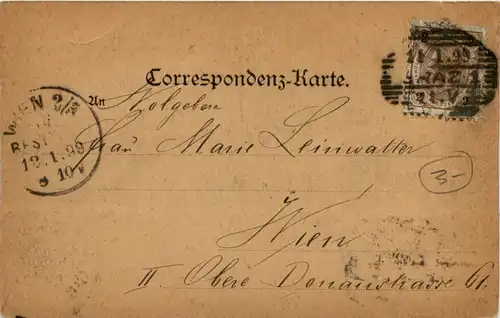 Correspondenz-Karte.
An Wolgeboren
Frau Marie Leinwatter
Wien
II. Obere Donaustrasse 61.
WIEN 2/3
BEST
12.1.99
8 10 V
GRAZ 1
1.99
2 2
3-